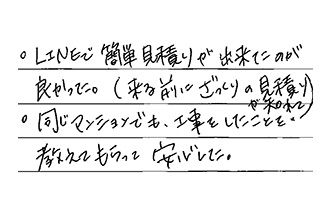 ○ LINEで簡単見積りが出来たのが
良かった。(来る前にざっくりの見積りが知れて)
○ 同じマンションでも、工事をしたことを、
教えてもらって安心した。